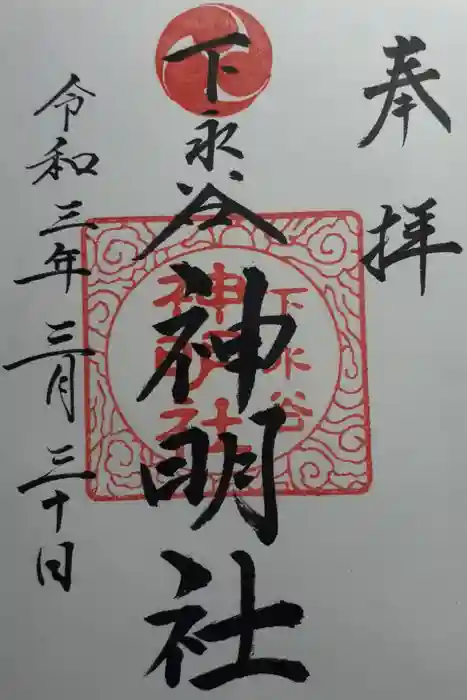 奉拝
下永谷神明社
下永谷
神明社
令和三年三月三十日